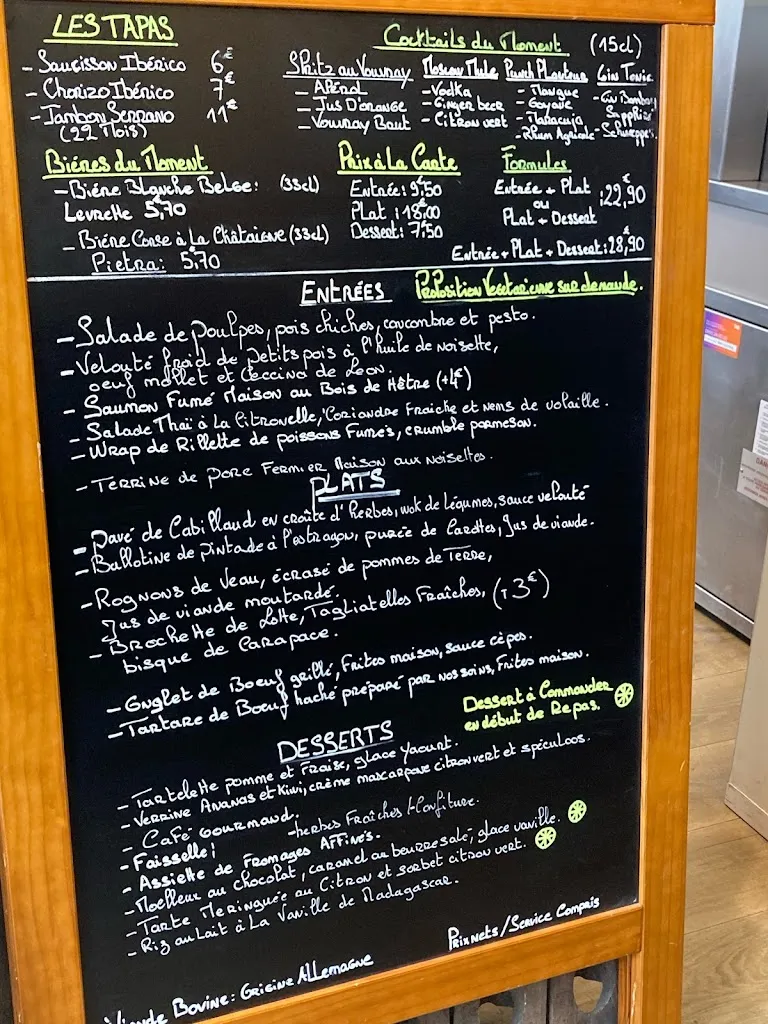 LES TAPAS
- Saucisson Ibérico 6€
- Chorizo Ibérico 7€
- Jambon Serrano 11€
(22 Mois)
Cocktails du Moment (15cl)
Spritz au Vouvray
- Apérol
- Jus D'orange
- Vouvray Brut
Moscow Mule
- Vodka
- Ginger beer
- Citron vert
Punch Planteur
- Mangue
- Goyave
- Maracuja
- Rhum Agricole
Gin Tonic
- Gin Bombay
Sapphire
- Schweppes
Bières du Moment
- Bière Blanche Belge: (33cl)
Levrette 5,70
- Bière Corse à La Châtaigne (33cl)
Pietra: 5,70
Prix à La Carte
Entrée: 9,50
Plat : 18,00
Dessert: 7,50
Formules
Entrée + Plat
ou :22,90
Plat + Dessert
Entrée + Plat + Dessert: 28,90
ENTRÉES Proposition Vegetarienne sur demande.
- Salade de poulpes, pois chiches, concombre et pesto.
- Velouté froid de petits pois à l'huile de noisette,
oeuf mollet et Ceccina de Leon.
- Saumon Fumé Maison au Bois de Hêtre (+4€)
- Salade Thaï à La Citronelle, Coriandre Fraiche et nems de volaille.
- Wrap de Rillette de poissons Fumés, crumble parmesan.
- Terrine de porc Fermier Maison aux noisettes.
PLATS
- Pavé de Cabillaud en croûte d'herbes, wok de légumes, sauce velouté
- Ballotine de pintade à l'estragon, purée de Carottes, Jus de viande.
- Rognons de Veau, écrasé de pommes de Terre,
Jus de viande moutardé.
- Brochette de Lotte, Tagliatelles Fraîches, (+3€)
bisque de Carapace.
- Onglet de Boeuf grillé, Frites maison, sauce cèpes.
- Tartare de Boeuf haché préparé par nos soins, Frites maison.
DESSERTS
Dessert à Commander
en début de Repas.
- Tartelette pomme et Fraise, glace yaourt.
- Verrine Ananas et Kiwi, crème mascarpone citron vert et spéculoos.
- Café Gourmand.
- Faisselle: -herbes Fraîches -Confiture.
- Assiette de Fromages Affinés.
- Moelleux au chocolat, caramel au beurre salé, glace vanille.
- Tarte Meringuée au Citron et sorbet citron vert.
- Riz au Lait à La Vanille de Madagascar.
Prix nets/Service Compris
Viande Bovine: Origine Allemagne